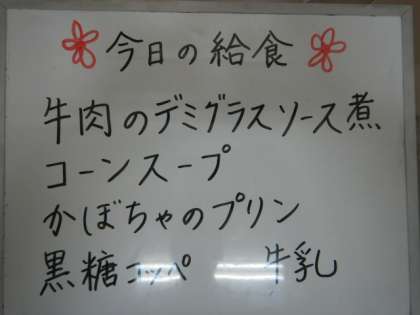 今日の給食
牛肉のデミグラスソース煮
コーンスープ
かぼちゃのプリン
黒糖コッペ 牛乳